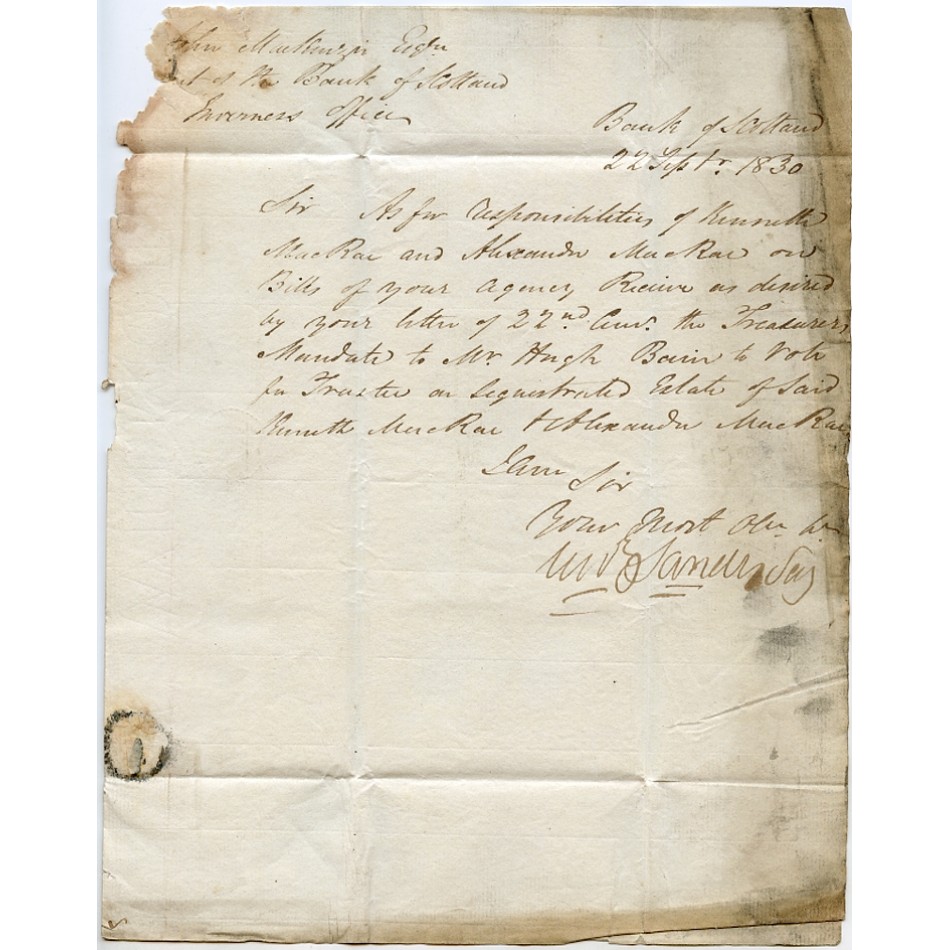 John MacKenzie Esqr
of the Bank of Scotland
Inverness Office
Bank of Scotland
22 Septr. 1830
Sir As for responsibilities of Kenneth
MacRae and Alexander MacRae on
Bills of your agency, Receive as desired
by your letter of 22nd the Treasurers
Mandate to Mr. Hugh Bain to Vote
for Trustee on Sequestrated Estate of Said
Kenneth MacRae & Alexander MacRae
I am Sir
Your Most